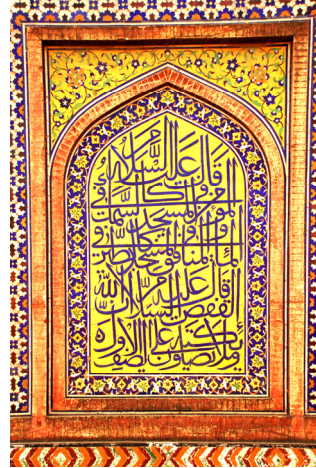 قال عليه السلام
المؤمن في المسجد كالسمك في
الماء والمنافق في المسجد كالطير في
القفص قال عليه السلام ان الله
وملائكته يصلون على